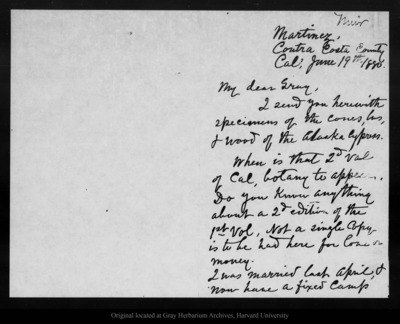 Muir
Martinez,
Contra Costa County
Cal, June 19th, 1880.
My dear Gray,
I send you herewith
specimens of the cones, lvs,
& wood of the Alaska Cypress.
When is that 2d Vol
of Cal, botany to appear.
Do you know anything
about a 2d edition of the
1st Vol, Not a single copy
is to be had here for love or
money.
I was married last April, &
now have a fixed Camp
Original located at Gray Herbarium Archives, Harvard University